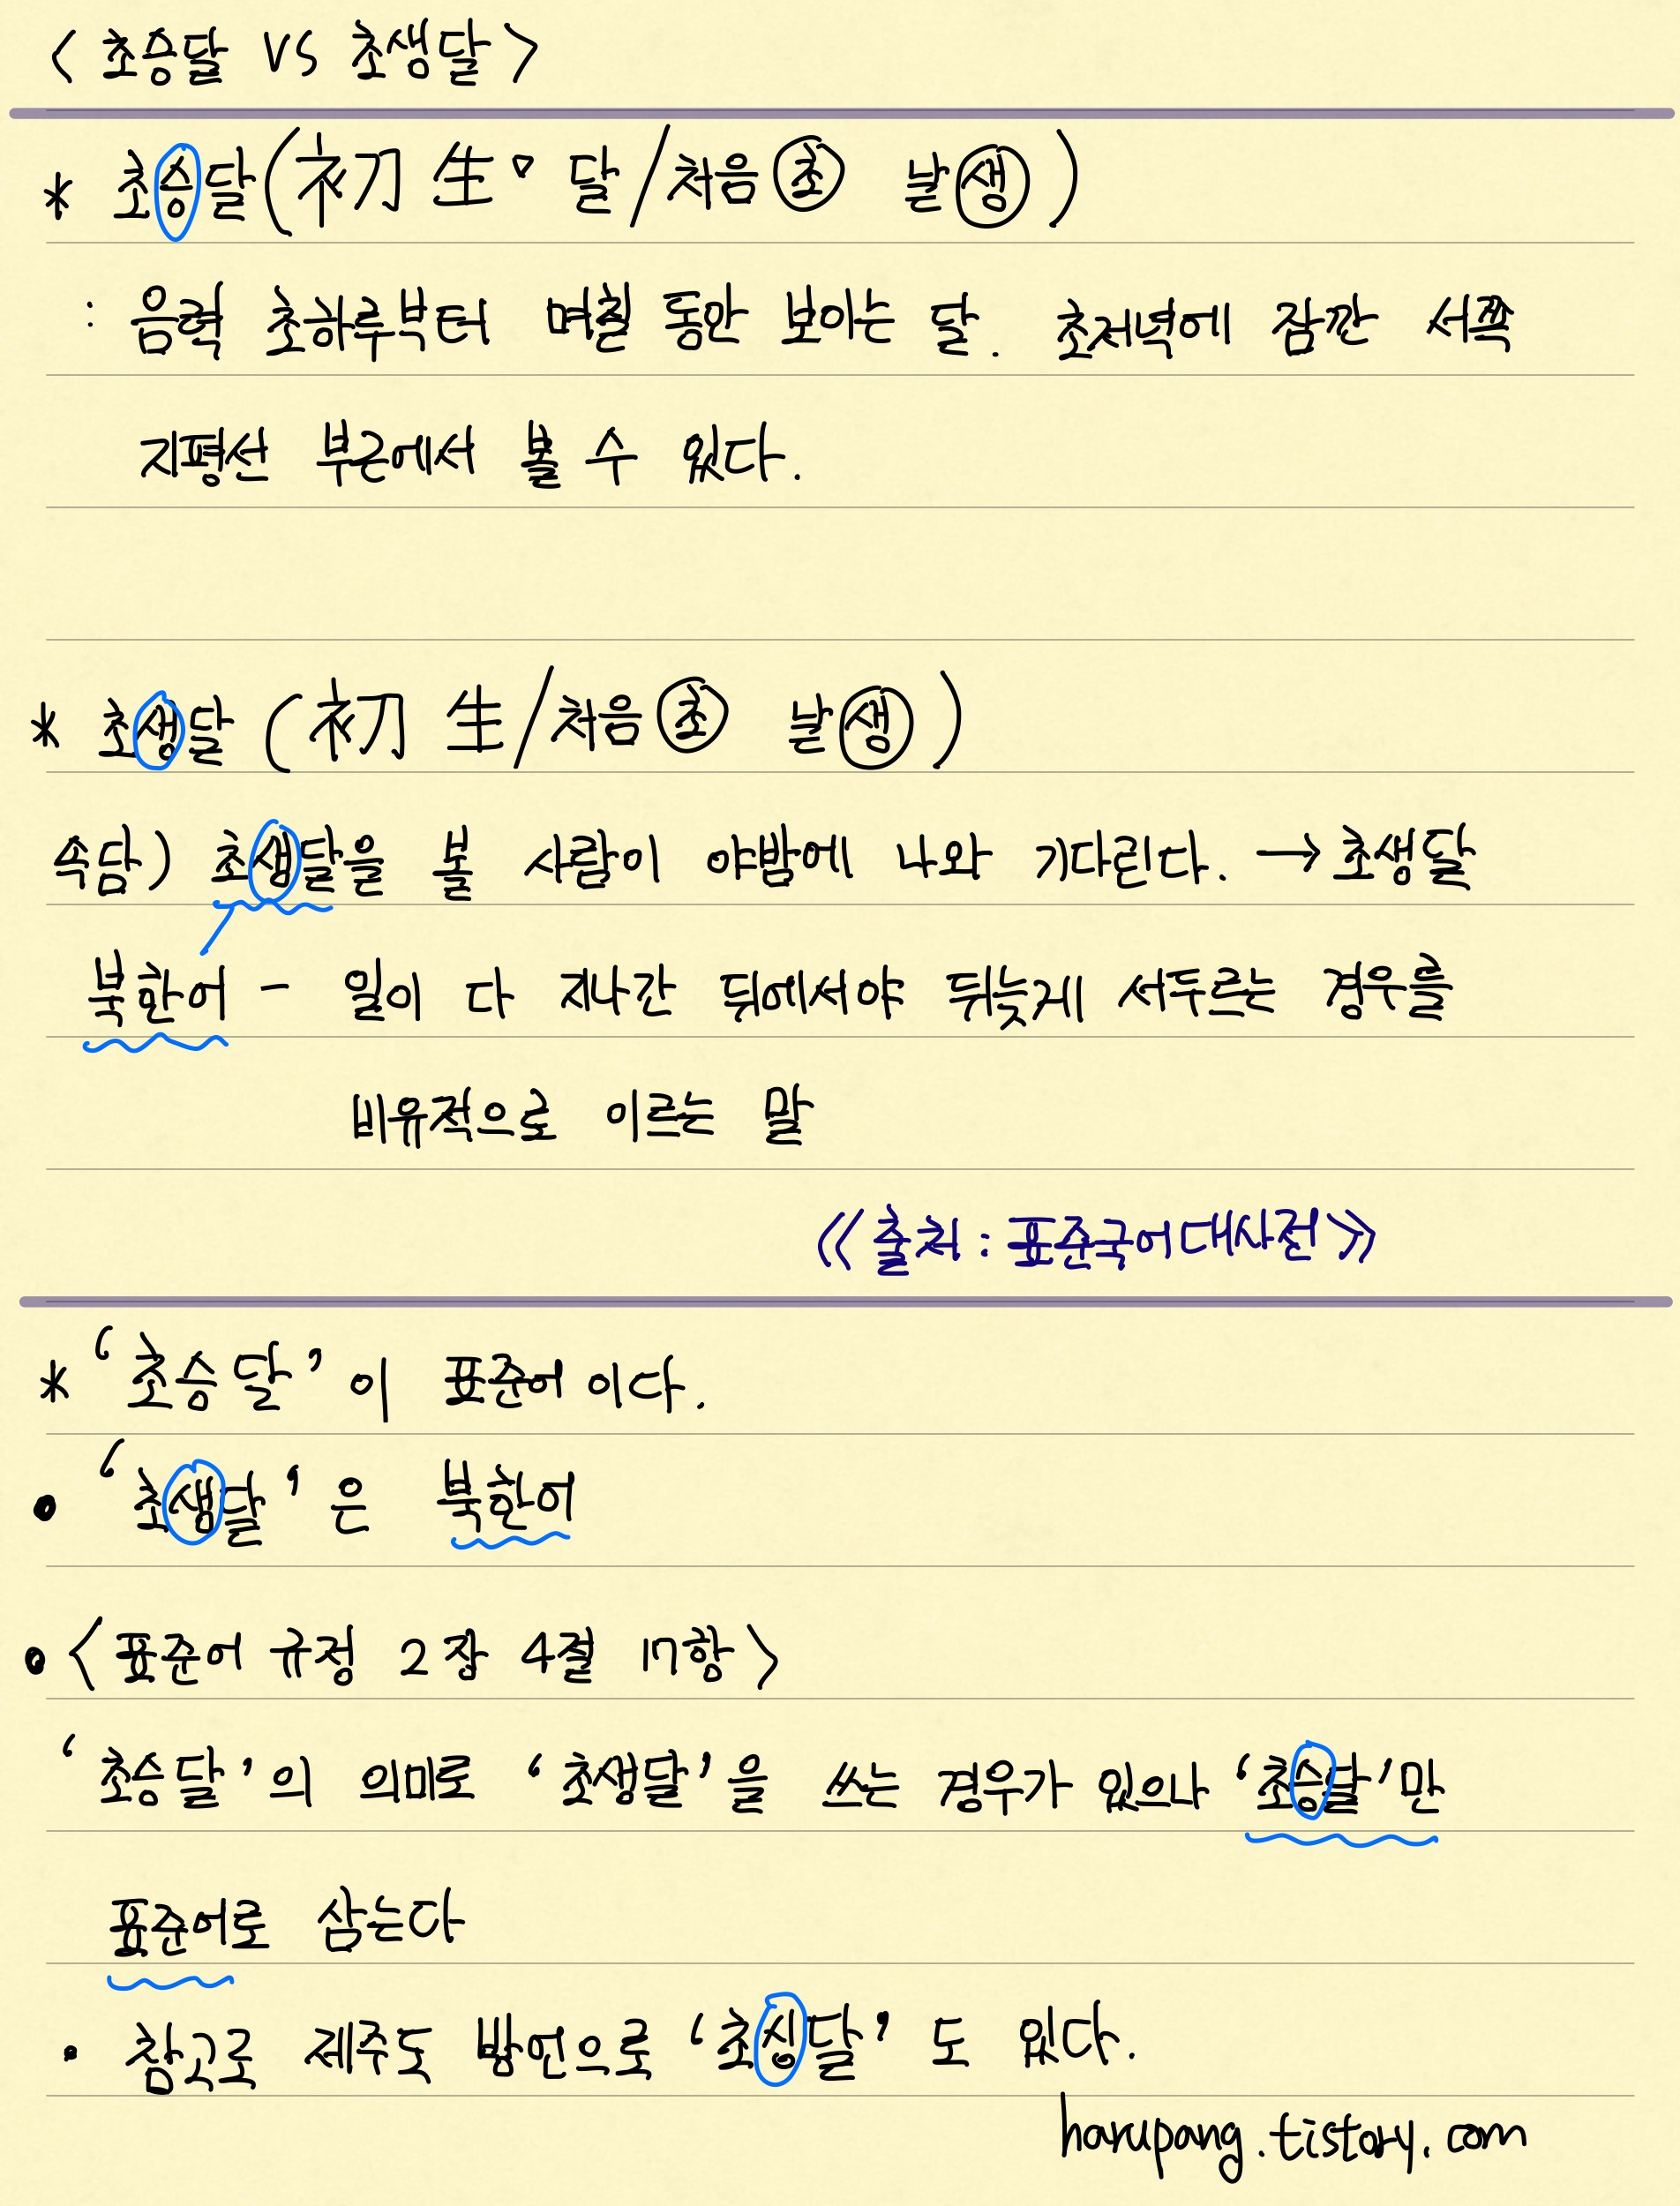 < 초승달 VS 초생달 >
* 초승달(初生▽달/처음 초 날 생)
: 음력 초하루부터 며칠 동안 보이는 달. 초저녁에 잠깐 서쪽
지평선 부근에서 볼 수 있다.
* 초생달 (初生/처음 초 날 생)
속담) 초생달을 볼 사람이 야밤에 나와 기다린다. → 초생달
북한어 - 일이 다 지나간 뒤에서야 뒤늦게 서두르는 경우를
비유적으로 이르는 말
《출처 : 표준국어대사전》
* '초승달'이 표준어이다.
• '초생달'은 북한어
• <표준어 규정 2장 4절 17항>
'초승달'의 의미로 '초생달'을 쓰는 경우가 있으나 '초승달'만
표준어로 삼는다
• 참고로 제주도 방언으로 '초싱달'도 있다.
harupang.tistory.com